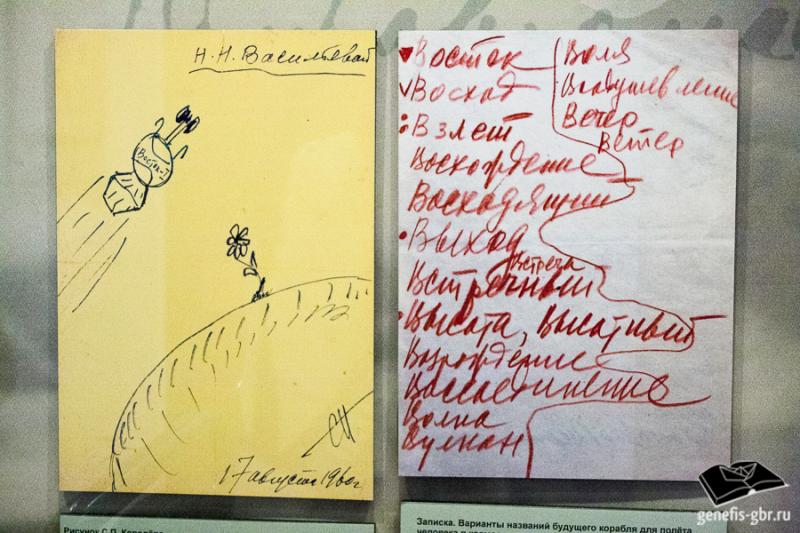 Н.Н. Васильевой
Восток-I
17 августа 1960г
Восток
Восход
Взлет
Восхождение
Восходящий
Выход
Встреча
Встречный
Высота, Высотный
Возрождение
Воссоединение
Волна
Вулкан
Воля
Воодушевление
Вечер
Ветер
Рисунок С.П. Королёва
Записка. Варианты названий будущего корабля для полёта
человека в космос
genefis-gbr.ru